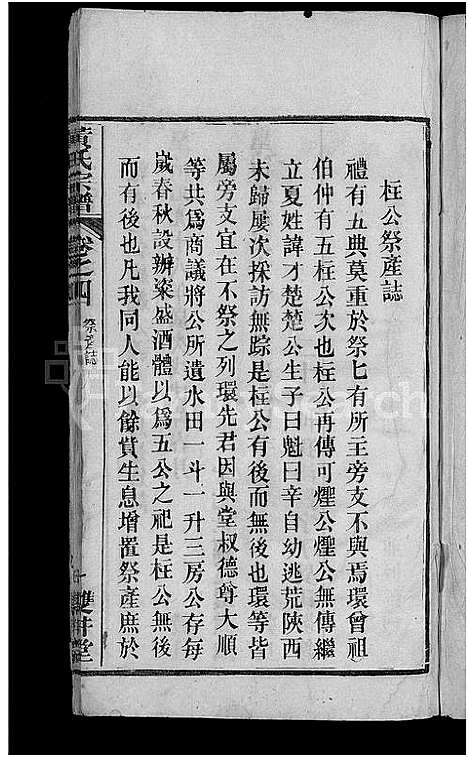 枉公祭產誌
禮有五典莫重於祭七有所主旁支不與焉環曾祖
伯仲有五枉公次也枉公再傳可煙公煙公無傳繼
立夏姓諱才楚楚公生子曰魁曰辛自幼逃荒陝西
未歸屢次採訪無踪是枉公有後而無後也環等皆
屬旁支宜在不祭之列環先君因與堂叔德尊大順
等共爲商議將公所遺水田一斗一升三房公存每
歲春秋設辦粢盛酒體以爲五公之祀是枉公無後
而有後也凡我同人能以餘貲生息增置祭產庶於
黃氏宗譜
卷之四
祭產誌
一
雙井堂